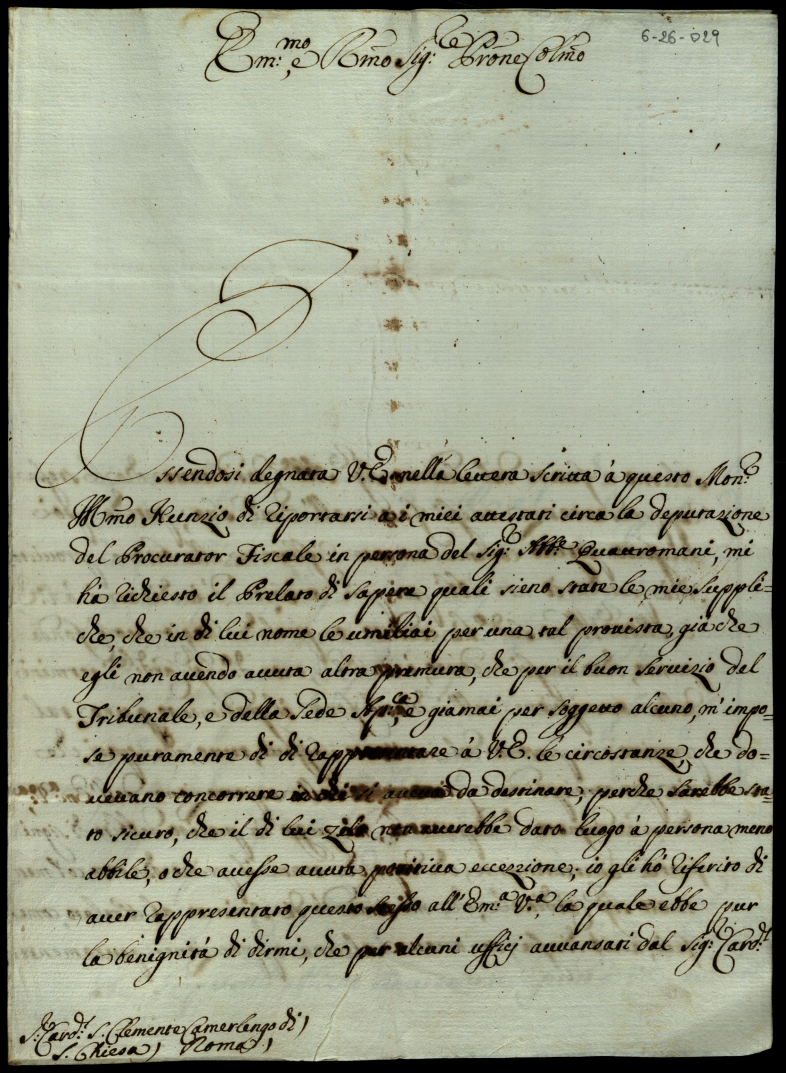 6-26-029
Em:mo, e Rmo Sig:re Prone Colmo
Essendosi degnata V.E. nella lettera scritta à questo Mon:e
Illmo Nunzio di riportarsi a i miei attestati circa la deputazione
del Procurator Fiscale in persona del Sig:e Abbe Quattromani, mi
hà richiesto il Prelato di sapere quali sieno state le mie suppli=
che, che in di lui nome le umiliai per una tal provista, già che
egli non avendo avuta altra premura, che per il buon servizio del
Tribunale, e della Sede Ap:ca, e giamai per soggetto alcuno, m'impo=
se puramente di di rappresentare à V.E. le circostanze, che do=
vevano concorrere in chi si aveva da destinare, perche sarebbe sta=
to sicuro, che il di lui zelo non averebbe dato luogo à persona meno
abbile, o che avesse avuta positiva eccezzione; io gli hò riferito di
aver rappresentato questo stesso all'Em:a V:a, la quale ebbe pur
la benignità di dirmi, che per alcuni ufficj avvansati dal Sig: Card:l
S:r Card:l S. Clemente Camerlengo di)
S. Chiesa) Roma)